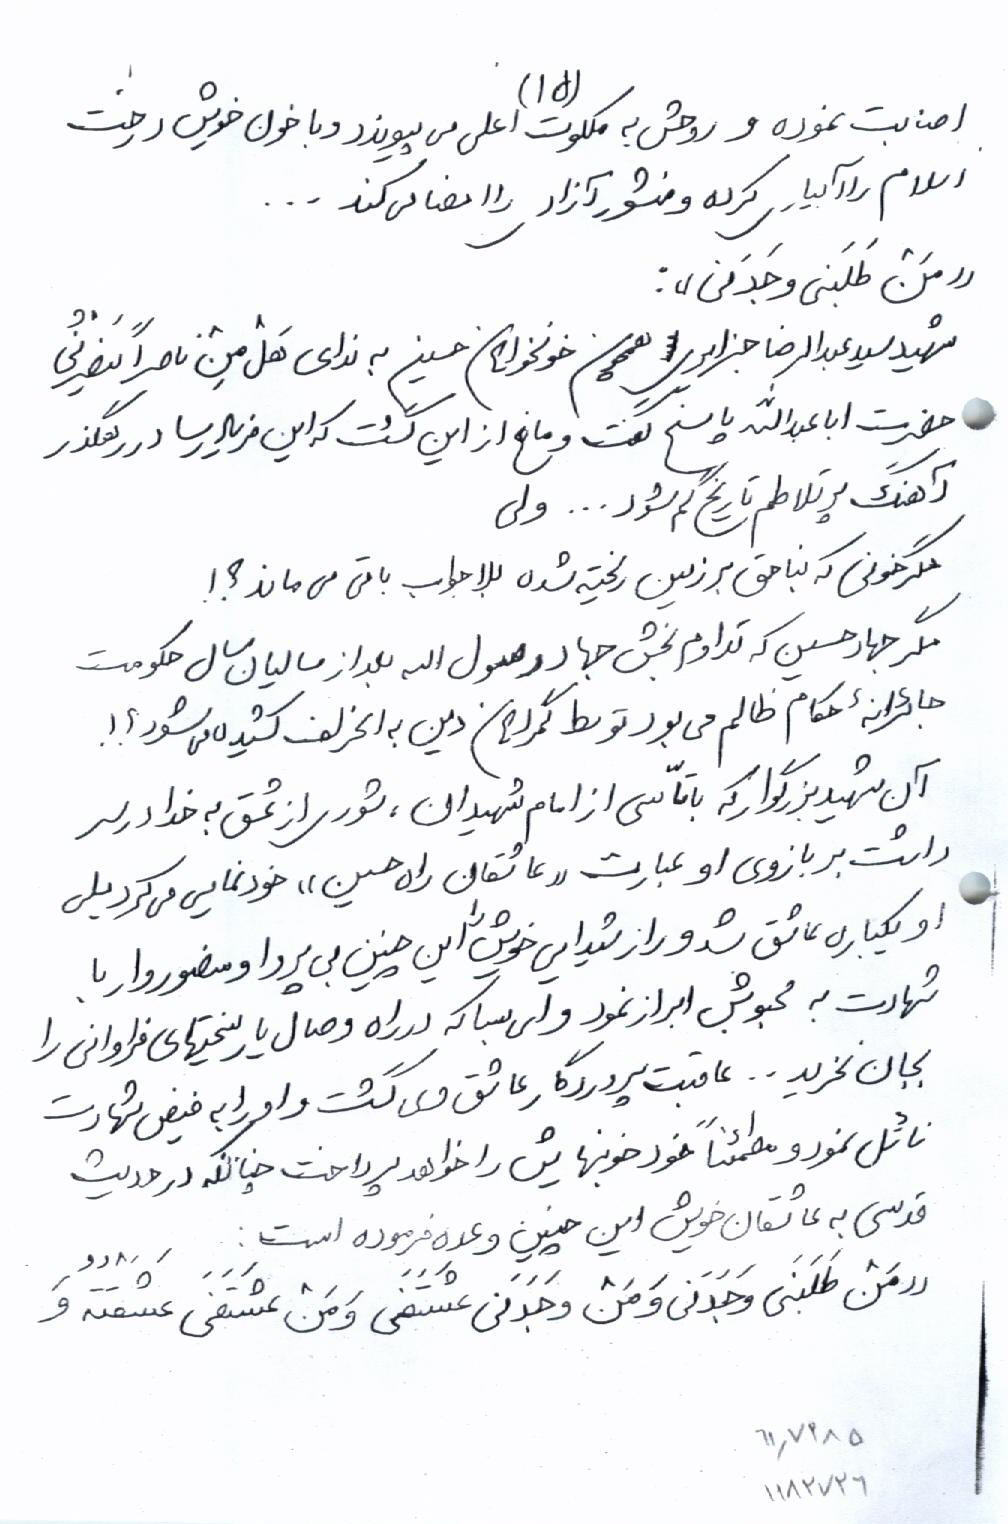 (١٥)
اصابت نموده و روحش به ملکوت اعلی می پیوندد و با خون خویش درخت
اسلام را آبیاری کرده و منشور آزادی را امضا می کند ...
«مَنْ طَلَبَنی وَجَدَنی»:
شهید سید عبدالرضا جزایری خونخواهان حسین به ندای هَلْ مِنْ ناصراً یَنْصُرُنی
حضرت اباعبدالله پاسخ گفت و مانع از این گشت که این فریاد رسا در رهگذر
آهنگ پر تلاطم تاریخ گم شود ... ولی
مگر خونی که بناحق بر زمین ریخته شده بلاجواب باقی می ماند؟!
مگر جهاد حسین که تداوم بخش جهاد رسول الله بعد از سالیان سال حکومت
جائرانهٔ حکام ظالم می بود توسط گمراهان دین به انحراف کشیده می شود؟!
آن شهید بزرگوار که با تأسی از امام شهیدان، شوری از عشق به خدا در سر
داشت بر بازوی او عبارت «عاشقان راه حسین» خودنمایی می کرد بلی
او یکباره عاشق شد و راز شیدایی خویش را این چنین بی پروا و منصوروار با
شهادت به محبوبش ابراز نمود و ای بسا که در راه وصال یار سختیهای فراوانی را
بجان خرید .. عاقبت پروردگار عاشق وی گشت و او را به فیض شهادت
نائل نمود و مطمئناً خود خونبهایش را خواهد پرداخت چنانکه در حدیث
قدسی به عاشقان خویش این چنین وعده فرموده است:
«مَنْ طَلَبَنَی وَجَدَنی وَ مَنْ وَجَدَنی عَشَقَنی وَ مَنْ عَشَقَنَی عَشَقْتُهُ وَ
٦١٫٧٩٨٥
١١٨٢٧٢٦